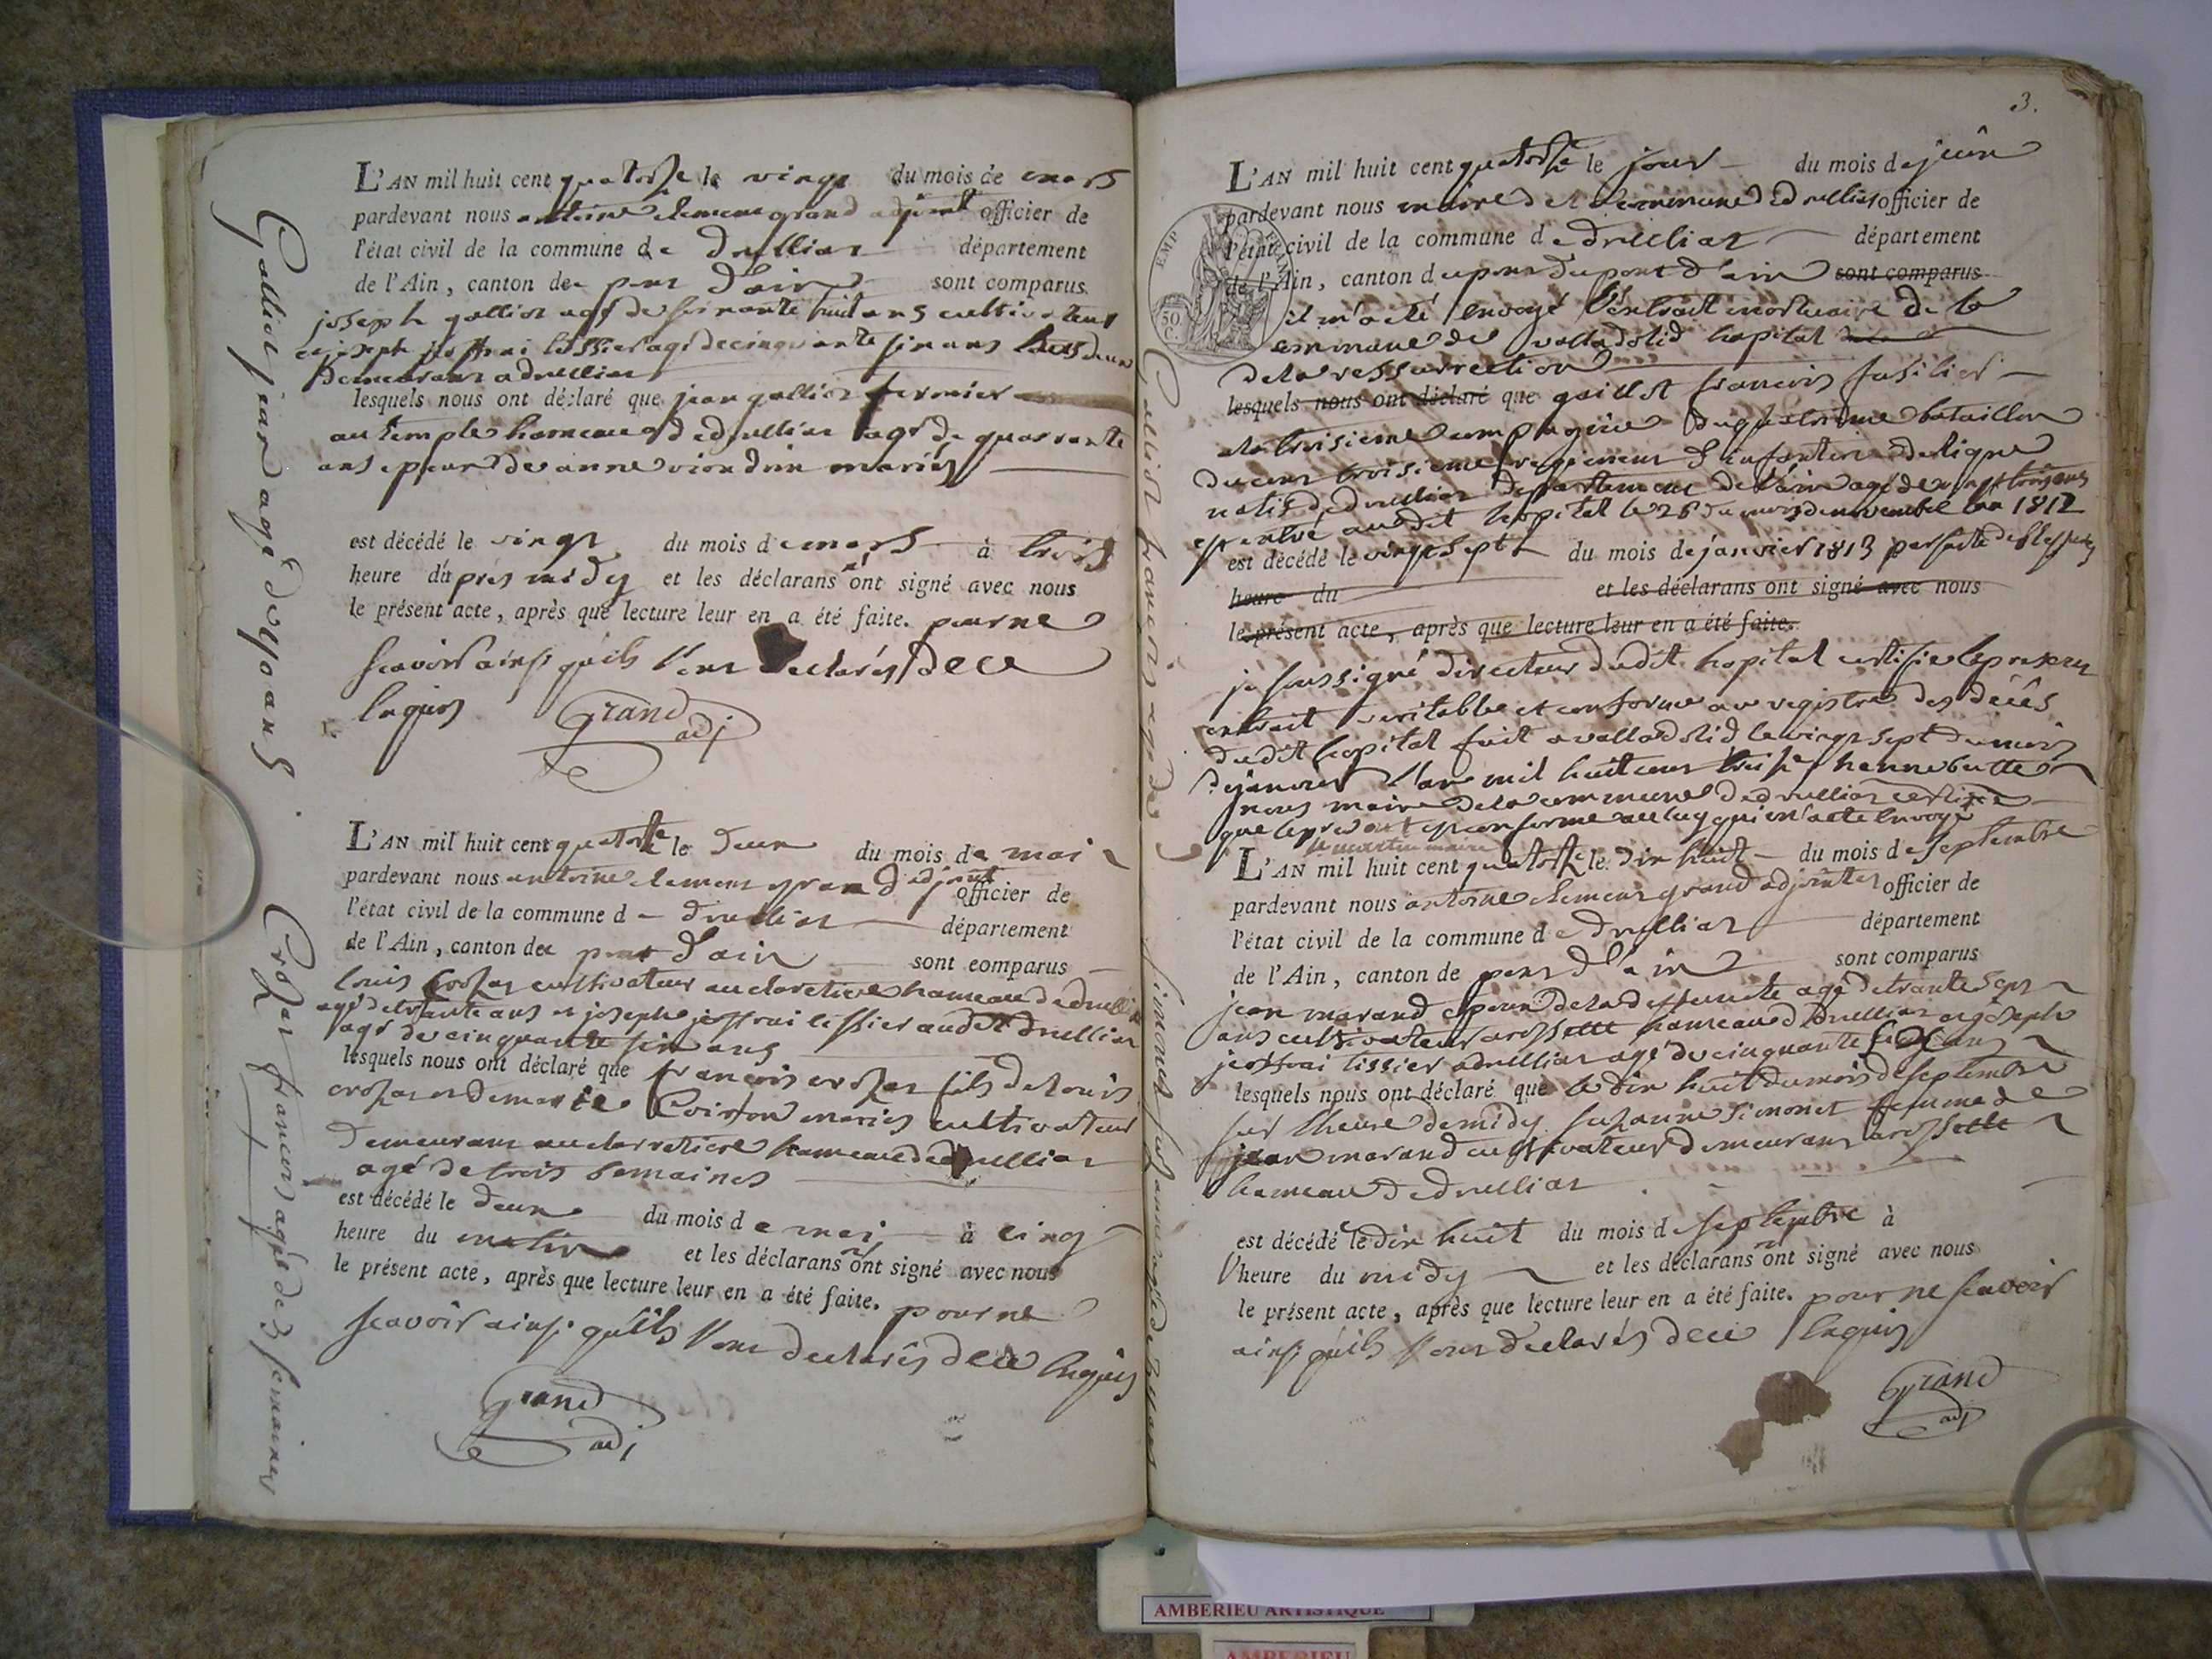 Galliot jean agé de 40 ans.
L'AN mil huit cent quatorze le vingt du mois de mars
pardevant nous antoine clement grand adjoint officier de
l'état civil de la commune de Druilliat département
de l'Ain, canton de pont d'ain sont comparus
joseph galliot agé de soixante huit ans cultivateur
et joseph joffrai tissier agé de cinquante six ans tous deux
demeurant a druilliat
lesquels nous ont déclaré que jean galliot fermier
au temple hameau de druilliat agé de quarante
ans epoux de anne mariés
est décédé le vingt du mois de mars à trois
heure du près midy et les déclarans n'ont signé avec nous
le présent acte, après que lecture leur en a été faite. pour ne
scavoir ainsi qu'ils l'ont declarés de ce
enquis Grand
adj
Crozat francois agés de 3 semaines
L'AN mil huit cent quatorze le deux du mois de mai
pardevant nous antoine clement grand adjoint officier de
l'état civil de la commune de druilliat département
de l'Ain, canton de pont d'ain sont comparus
louis crozat cultivateur au hameau de druilliat
agé de trante ans et joseph joffrai tissier audit druilliat
agé de cinquante six ans
lesquels nous ont déclaré que françois crozat fils de louis
crozat et de marie mariés cultivateur
demeurant au hameau de druilliat
agé de trois semaines
est décédé le deux du mois de mai à cinq
heure du matin et les déclarans n'ont signé avec nous
le présent acte, après que lecture leur en a été faite. pour ne
scavoir ainsi qu'ils l'ont declarés de ce enquis
Grand
adj
3.
EMP. FRAN
50
C.
L'AN mil huit cent quatorze le jour du mois de juin
pardevant nous maire de la commune de druilliat officier de
l'état civil de la commune de druilliat département
de l'Ain, canton du pont d'ain sont comparus
il m'a été envoyé l'extrait mortuaire de la
commune de valladolid hopital
de la ressurrection
lesquels nous ont déclaré que gaillot francois fusilier
a la troisieme compagnie du quatorzieme bataillon
du cent troisieme regiment d'infanterie de ligne
natif de druilliat departement de l'ain agé de vingt trois ans
est entré audit hopital le 26 du mois de novembre l'an 1812
est décédé le vingt sept du mois de janvier 1813 par suite de blessures
heure du et les déclarans ont signé avec nous
le présent acte, après que lecture leur en a été faite.
je soussigné directeur dudit hopital certifie le present
extrait veritable et conforme au registre des décês
dudit hopital fait a valladolid le vingt sept du mois
de janvier l'an mil huit cent treize
nous maire de la commune de druilliat certifie
que le present est conforme a celuy qui m'a eté envoyé
maire
simonet suzanne agée de
L'AN mil huit cent quatorze le dix huit du mois de septembre
pardevant nous antoine clement grand adjoint officier de
l'état civil de la commune de druilliat département
de l'Ain, canton de pont d'ain sont comparus
jean marand epoux de la deffuncte agé de trante sept
ans cultivateur a rossette hameau de druilliat et joseph
joffrai tissier a druilliat agé de cinquante six ans
lesquels nous ont déclaré que le dix huit du mois de septembre
sur l'heure de midy suzanne simonet femme de
jean marand cultivateur demeurant a rossette
hameau de druilliat
est décédé le dix huit du mois de septembre à
l'heure du midy et les déclarans n'ont signé avec nous
le présent acte, après que lecture leur en a été faite. pour ne scavoir
ainsi qu'ils l'ont declarés de ce enquis
Grand
adj
AMBERIEU ARTISTIQUE
AMBERIEU